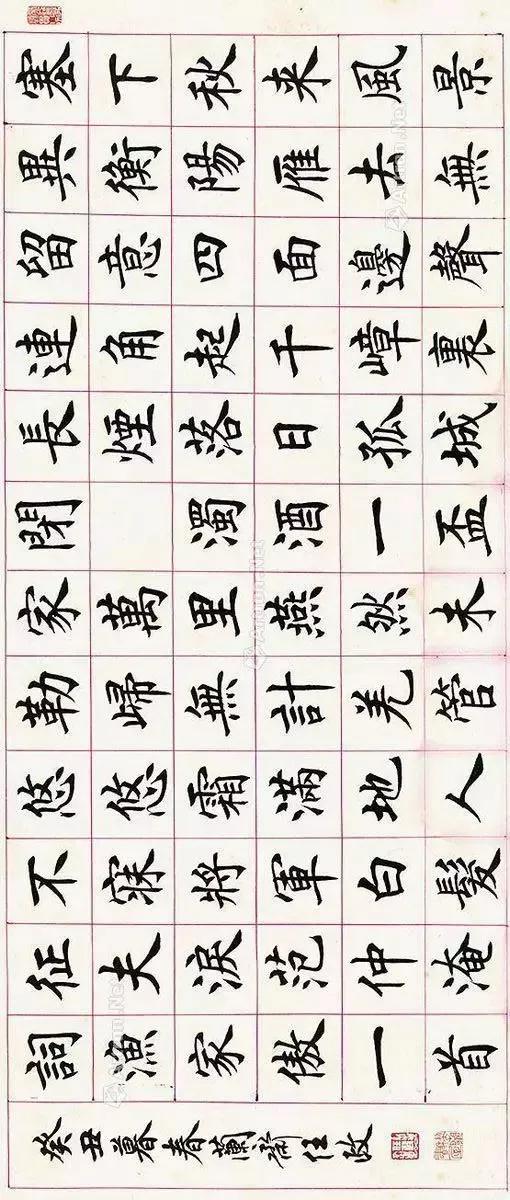 塞下秋来風景
異衡陽雁去無
留意四面邊聲
連角起千嶂裏
長煙落日孤城
閉 濁酒一盃
家萬里燕然未
勒歸無計羌管
悠悠霜滿地人
不寐將軍白髮
征夫淚范仲淹
詞漁家傲一首
癸丑暮春蘭齋任政
Artron.Net
Artron.Net
Artron.Net